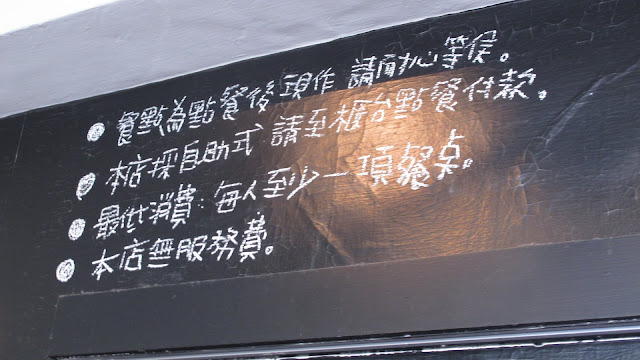 餐點為點餐後現作 請耐心等侯。
本店採自助式 請至櫃台點餐付款。
最低消費:每人至少一項餐奌。
本店無服務費。